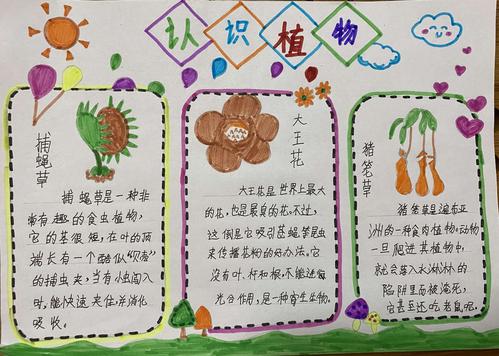 认识植物
捕蝇草
捕蝇草是一种非
常有趣的食虫植物，
它的茎很短，在叶的顶
端长有一个酷似“贝壳”
的捕虫夹，当有小虫闯入
时，能快速夹住，并消化
吸收。
大王花
大王花是世界上最大
的花，也是最臭的花。不过，
这倒是它吸引苍蝇等昆虫
来传播花粉的好办法。它
没有叶、杆和根，不能进行
光合作用，是一种寄生生物。
猪笼草
猪笼草是遍布亚
洲的一种食肉植物。动物
一旦爬进其植物中
就会落入水淋淋的
陷阱里而被淹死，
它甚至还吃老鼠呢。